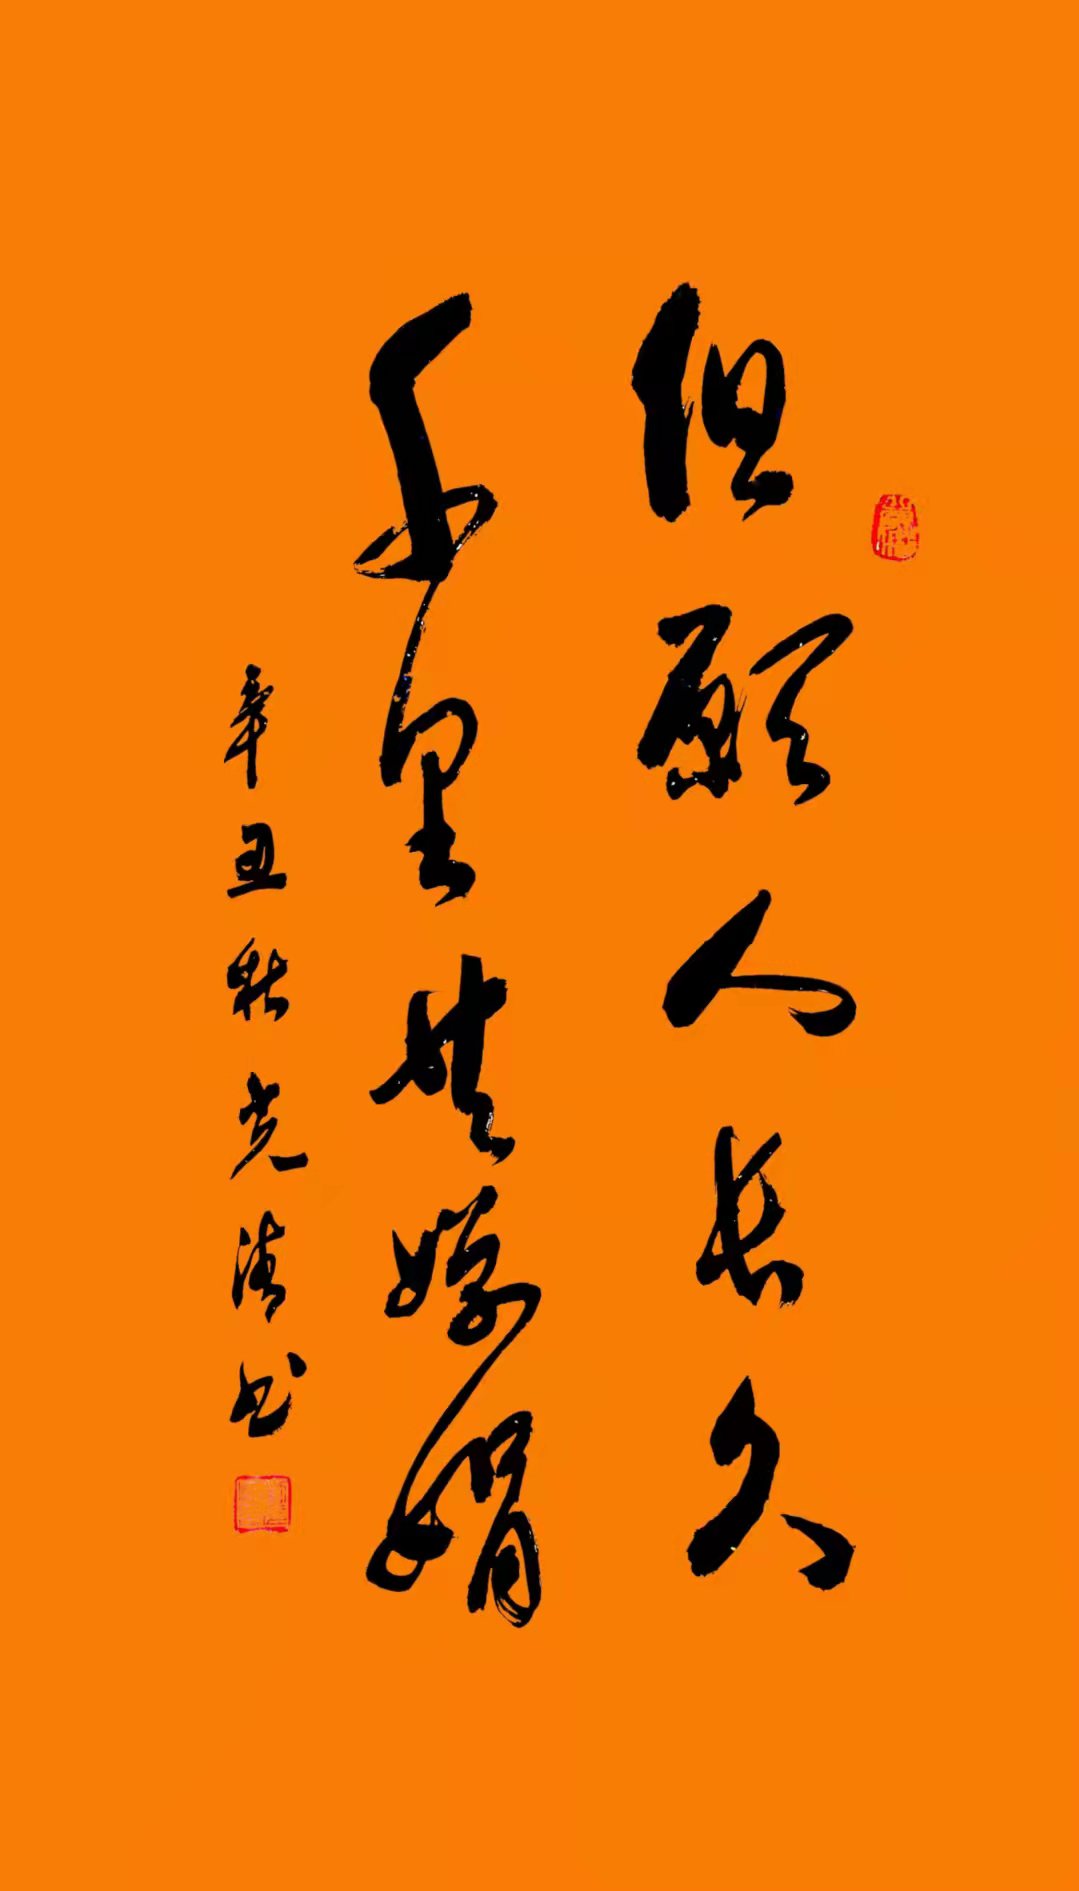 但愿人长久
千里共婵娟
辛丑秋光清书